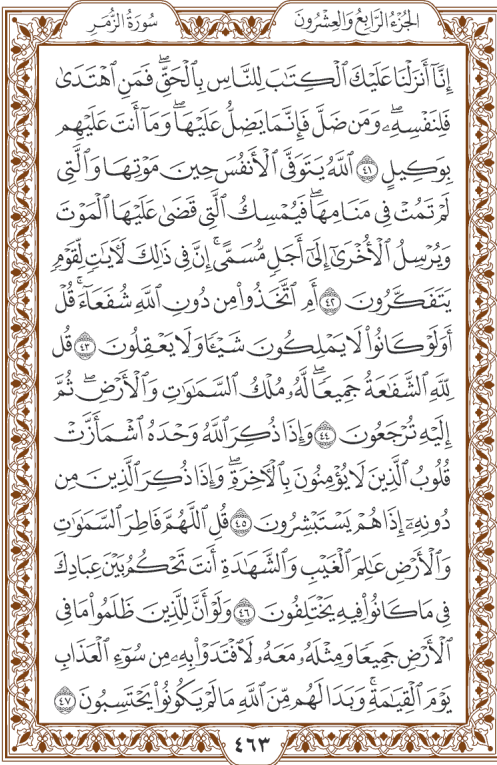 الجزء الرابع والعشرون
سورة الزمر
إِنَّآ أَنزَلْنَا عَلَيْكَ ٱلْكِتَٰبَ لِلنَّاسِ بِٱلْحَقِّۖ فَمَنِ ٱهْتَدَىٰ
فَلِنَفْسِهِۦۖ وَمَن ضَلَّ فَإِنَّمَا يَضِلُّ عَلَيْهَاۖ وَمَآ أَنتَ عَلَيْهِم
بِوَكِيلٍ ٤١ ٱللَّهُ يَتَوَفَّى ٱلْأَنفُسَ حِينَ مَوْتِهَا وَٱلَّتِى
لَمْ تَمُتْ فِى مَنَامِهَاۖ فَيُمْسِكُ ٱلَّتِى قَضَىٰ عَلَيْهَا ٱلْمَوْتَ
وَيُرْسِلُ ٱلْأُخْرَىٰٓ إِلَىٰٓ أَجَلٍ مُّسَمًّىۚ إِنَّ فِى ذَٰلِكَ لَءَايَٰتٍ لِّقَوْمٍ
يَتَفَكَّرُونَ ٤٢ أَمِ ٱتَّخَذُوا۟ مِن دُونِ ٱللَّهِ شُفَعَآءَۚ قُلْ
أَوَلَوْ كَانُوا۟ لَا يَمْلِكُونَ شَيْـًٔا وَلَا يَعْقِلُونَ ٤٣ قُل
لِّلَّهِ ٱلشَّفَٰعَةُ جَمِيعًاۖ لَّهُۥ مُلْكُ ٱلسَّمَٰوَٰتِ وَٱلْأَرْضِۖ ثُمَّ
إِلَيْهِ تُرْجَعُونَ ٤٤ وَإِذَا ذُكِرَ ٱللَّهُ وَحْدَهُ ٱشْمَأَزَّتْ
قُلُوبُ ٱلَّذِينَ لَا يُؤْمِنُونَ بِٱلْءَاخِرَةِۖ وَإِذَا ذُكِرَ ٱلَّذِينَ مِن
دُونِهِۦٓ إِذَا هُمْ يَسْتَبْشِرُونَ ٤٥ قُلِ ٱللَّهُمَّ فَاطِرَ ٱلسَّمَٰوَٰتِ
وَٱلْأَرْضِ عَٰلِمَ ٱلْغَيْبِ وَٱلشَّهَٰدَةِ أَنتَ تَحْكُمُ بَيْنَ عِبَادِكَ
فِى مَا كَانُوا۟ فِيهِ يَخْتَلِفُونَ ٤٦ وَلَوْ أَنَّ لِلَّذِينَ ظَلَمُوا۟ مَا فِى
ٱلْأَرْضِ جَمِيعًا وَمِثْلَهُۥ مَعَهُۥ لَٱفْتَدَوْا۟ بِهِۦ مِن سُوٓءِ ٱلْعَذَابِ
يَوْمَ ٱلْقِيَٰمَةِۚ وَبَدَا لَهُم مِّنَ ٱللَّهِ مَا لَمْ يَكُونُوا۟ يَحْتَسِبُونَ ٤٧
٤٦٣